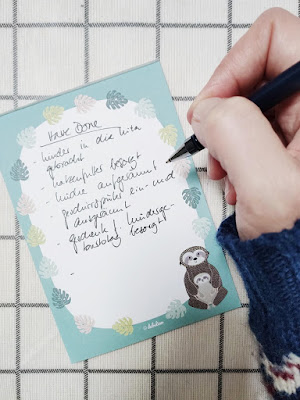 Have Done
- Kinder in die Kita
gebracht
- Katzenfutter besorgt
- Küche aufgeräumt
- Geschirrspüler ein- und
ausgeräumt
- Geschenk f. Kinderge-
burtstag besorgt!
-